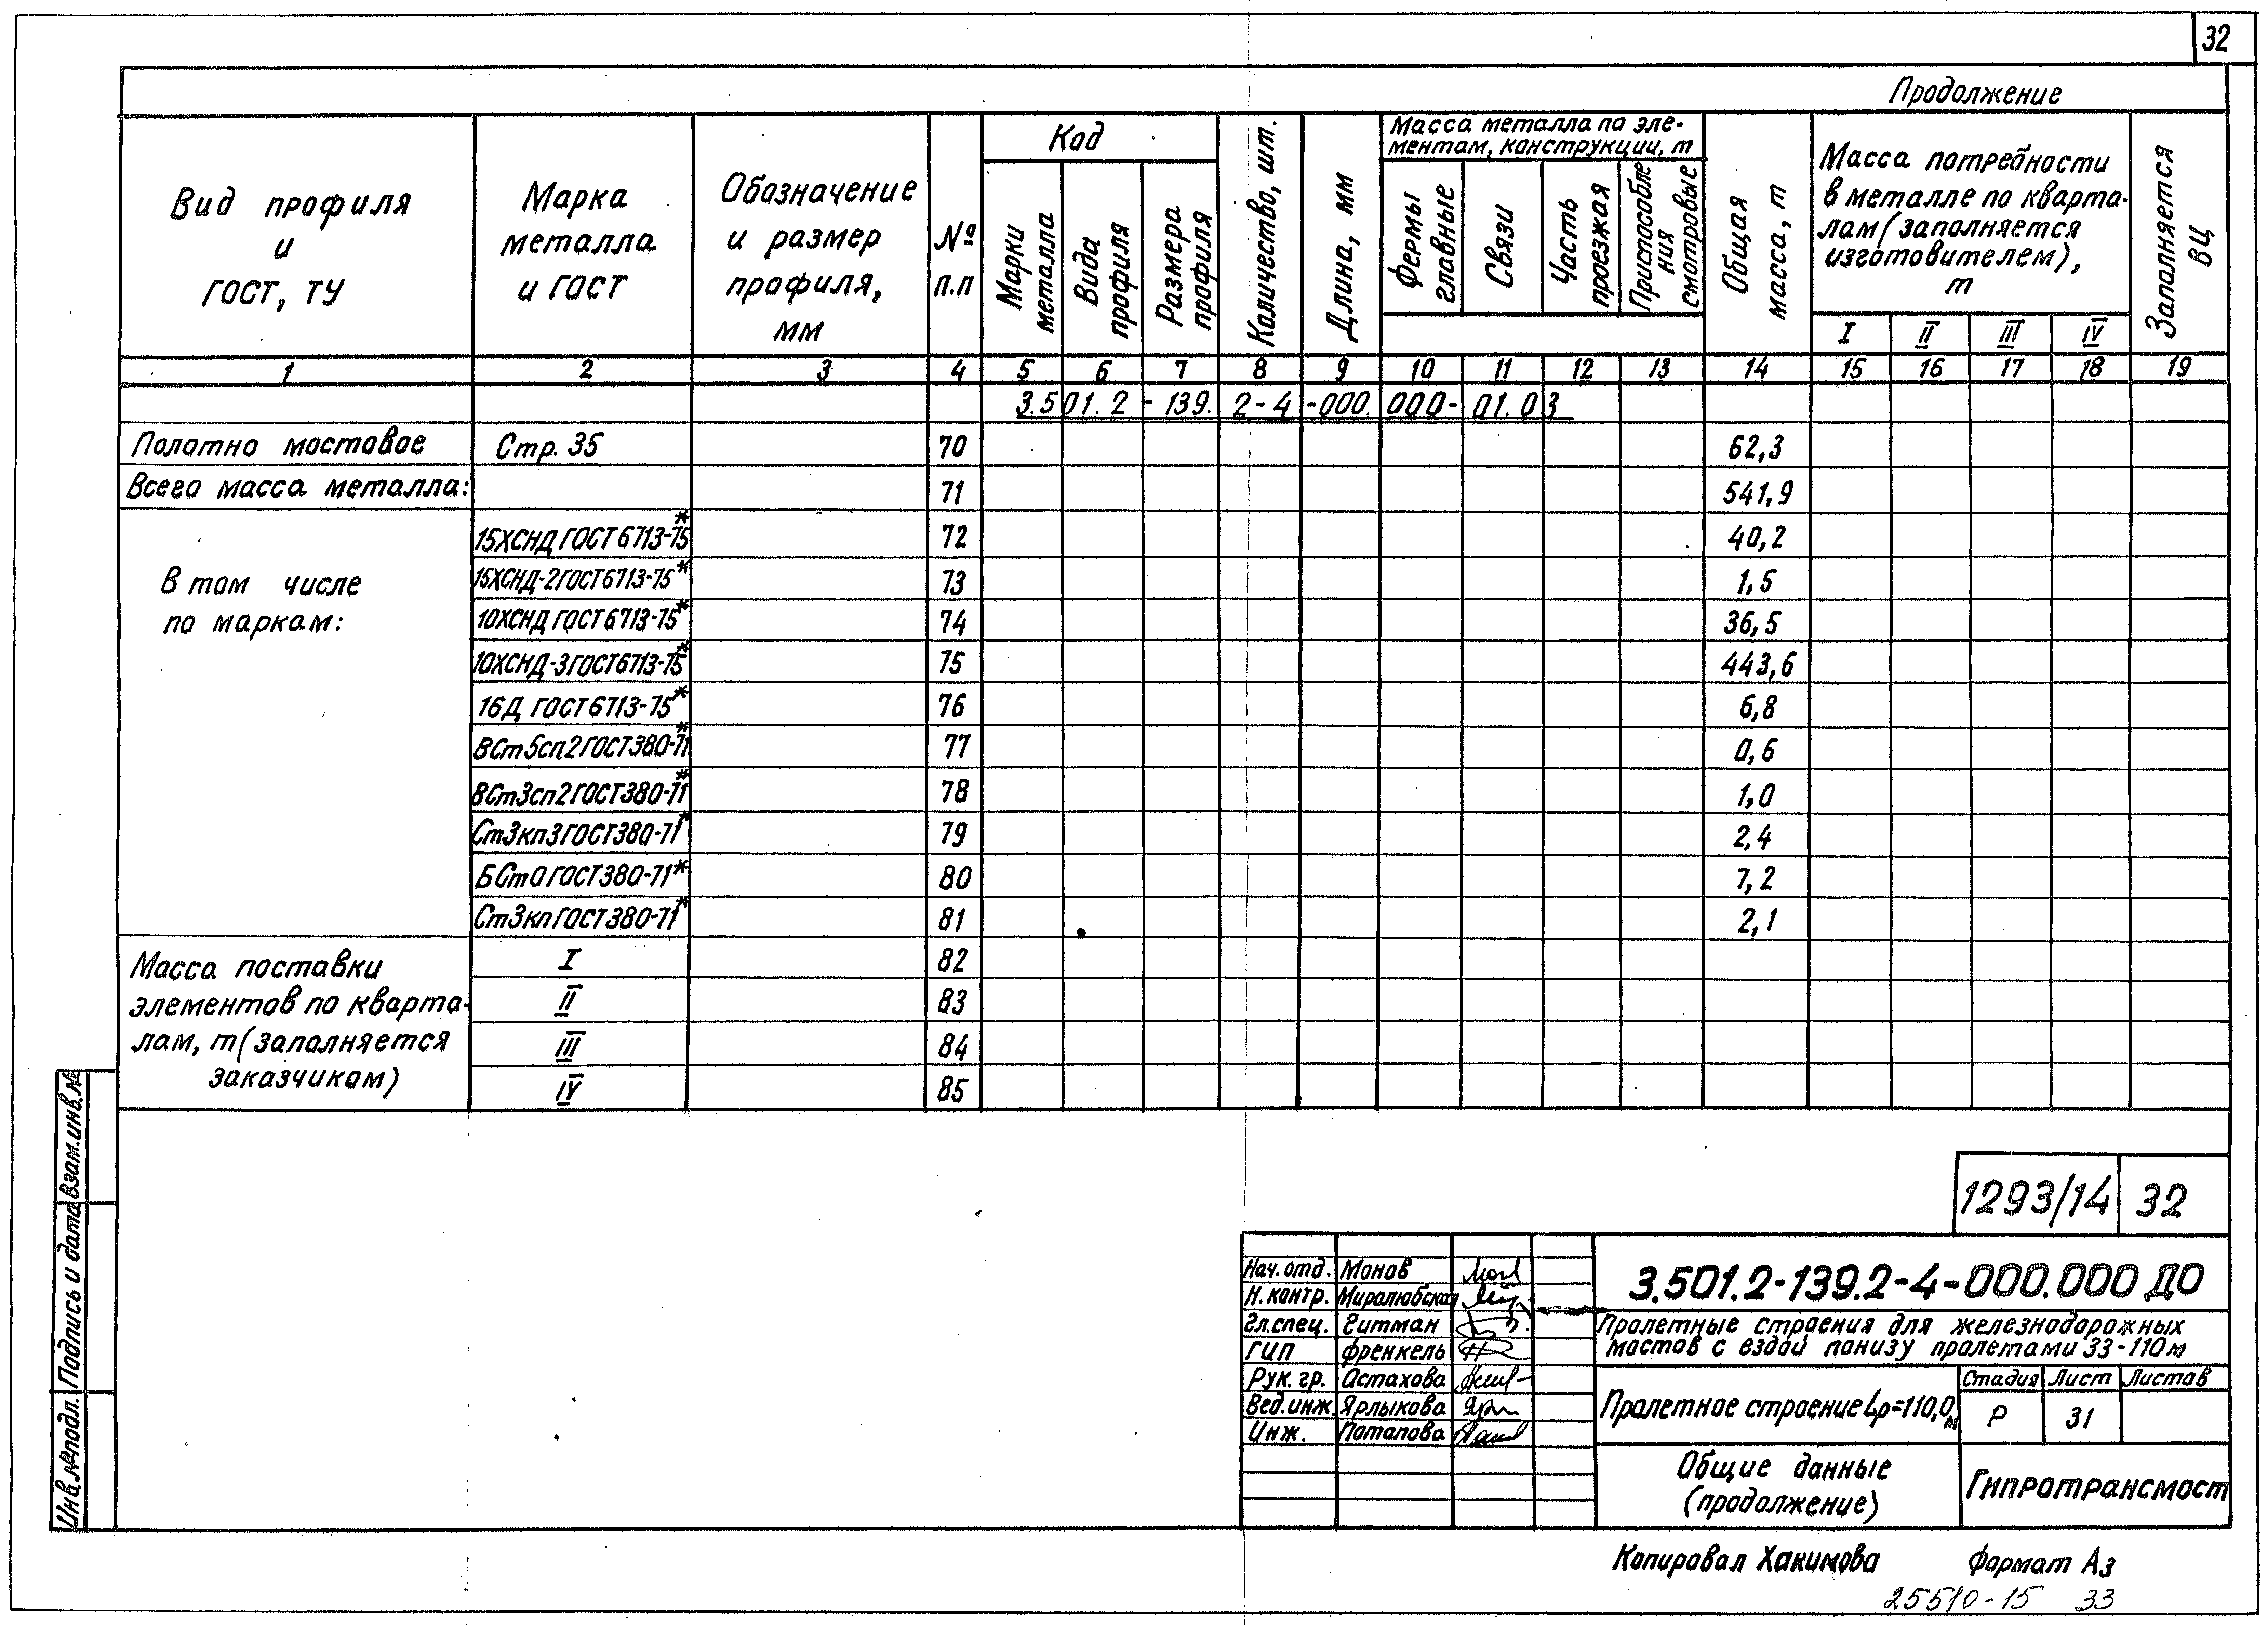 32
Продолжение
Вид профиля
и
ГОСТ, ТУ
Марка
металла
и ГОСТ
Обозначение
и размер
профиля,
мм
№
п.п
Код
Марки
металла
Вида
профиля
Размера
профиля
Количество, шт.
Длина, мм
Масса металла по эле-
ментам, конструкции, т
Фермы
главные
Связи
Часть
проезжая
Приспособле
ния
смотровые
Общая
масса, т
Масса потребности
в металле по кварта-
лам (заполняется
изготовителем),
т
I II III IV
Заполняется
ВЦ
1 2 3 4 5 6 7 8 9 10 11 12 13 14 15 16 17 18 19
3.501.2-139.2-4-000.000-01.03
Полотно мостовое Стр. 35 70 62,3
Всего масса металла: 71 541,9
В том числе
по маркам:
15ХСНД ГОСТ 6713-75* 72 40,2
15ХСНД-2 ГОСТ 6713-75* 73 1,5
10ХСНД ГОСТ 6713-75* 74 36,5
10ХСНД-3 ГОСТ 6713-75* 75 443,6
16Д ГОСТ 6713-75* 76 6,8
ВСт5сп2 ГОСТ 380-71* 77 0,6
ВСт3сп2 ГОСТ 380-71* 78 1,0
Ст3кп3 ГОСТ 380-71* 79 2,4
БСт0 ГОСТ 380-71* 80 7,2
Ст3кп ГОСТ 380-71* 81 2,1
Масса поставки
элементов по кварта-
лам, т (заполняется
заказчиком)
I 82
II 83
III 84
IV 85
Инв.№подл. Подпись и дата Взам.инв.№
1293/14 32
Нач. отд. Монов
Н. контр. Миролюбская
Гл. спец. Гитман
ГИП Френкель
Рук. гр. Астахова
Вед. инж. Ярлыкова
Инж. Потапова
3.501.2-139.2-4-000.000 ДО
Пролетные строения для железнодорожных
мостов с ездой понизу пролетами 33-110м
Пролетное строение Lр=110,0м
Стадия Лист Листов
Р 31
Общие данные
(продолжение)
Гипротрансмост
Копировал Хакимова Формат А3
25510-15 33